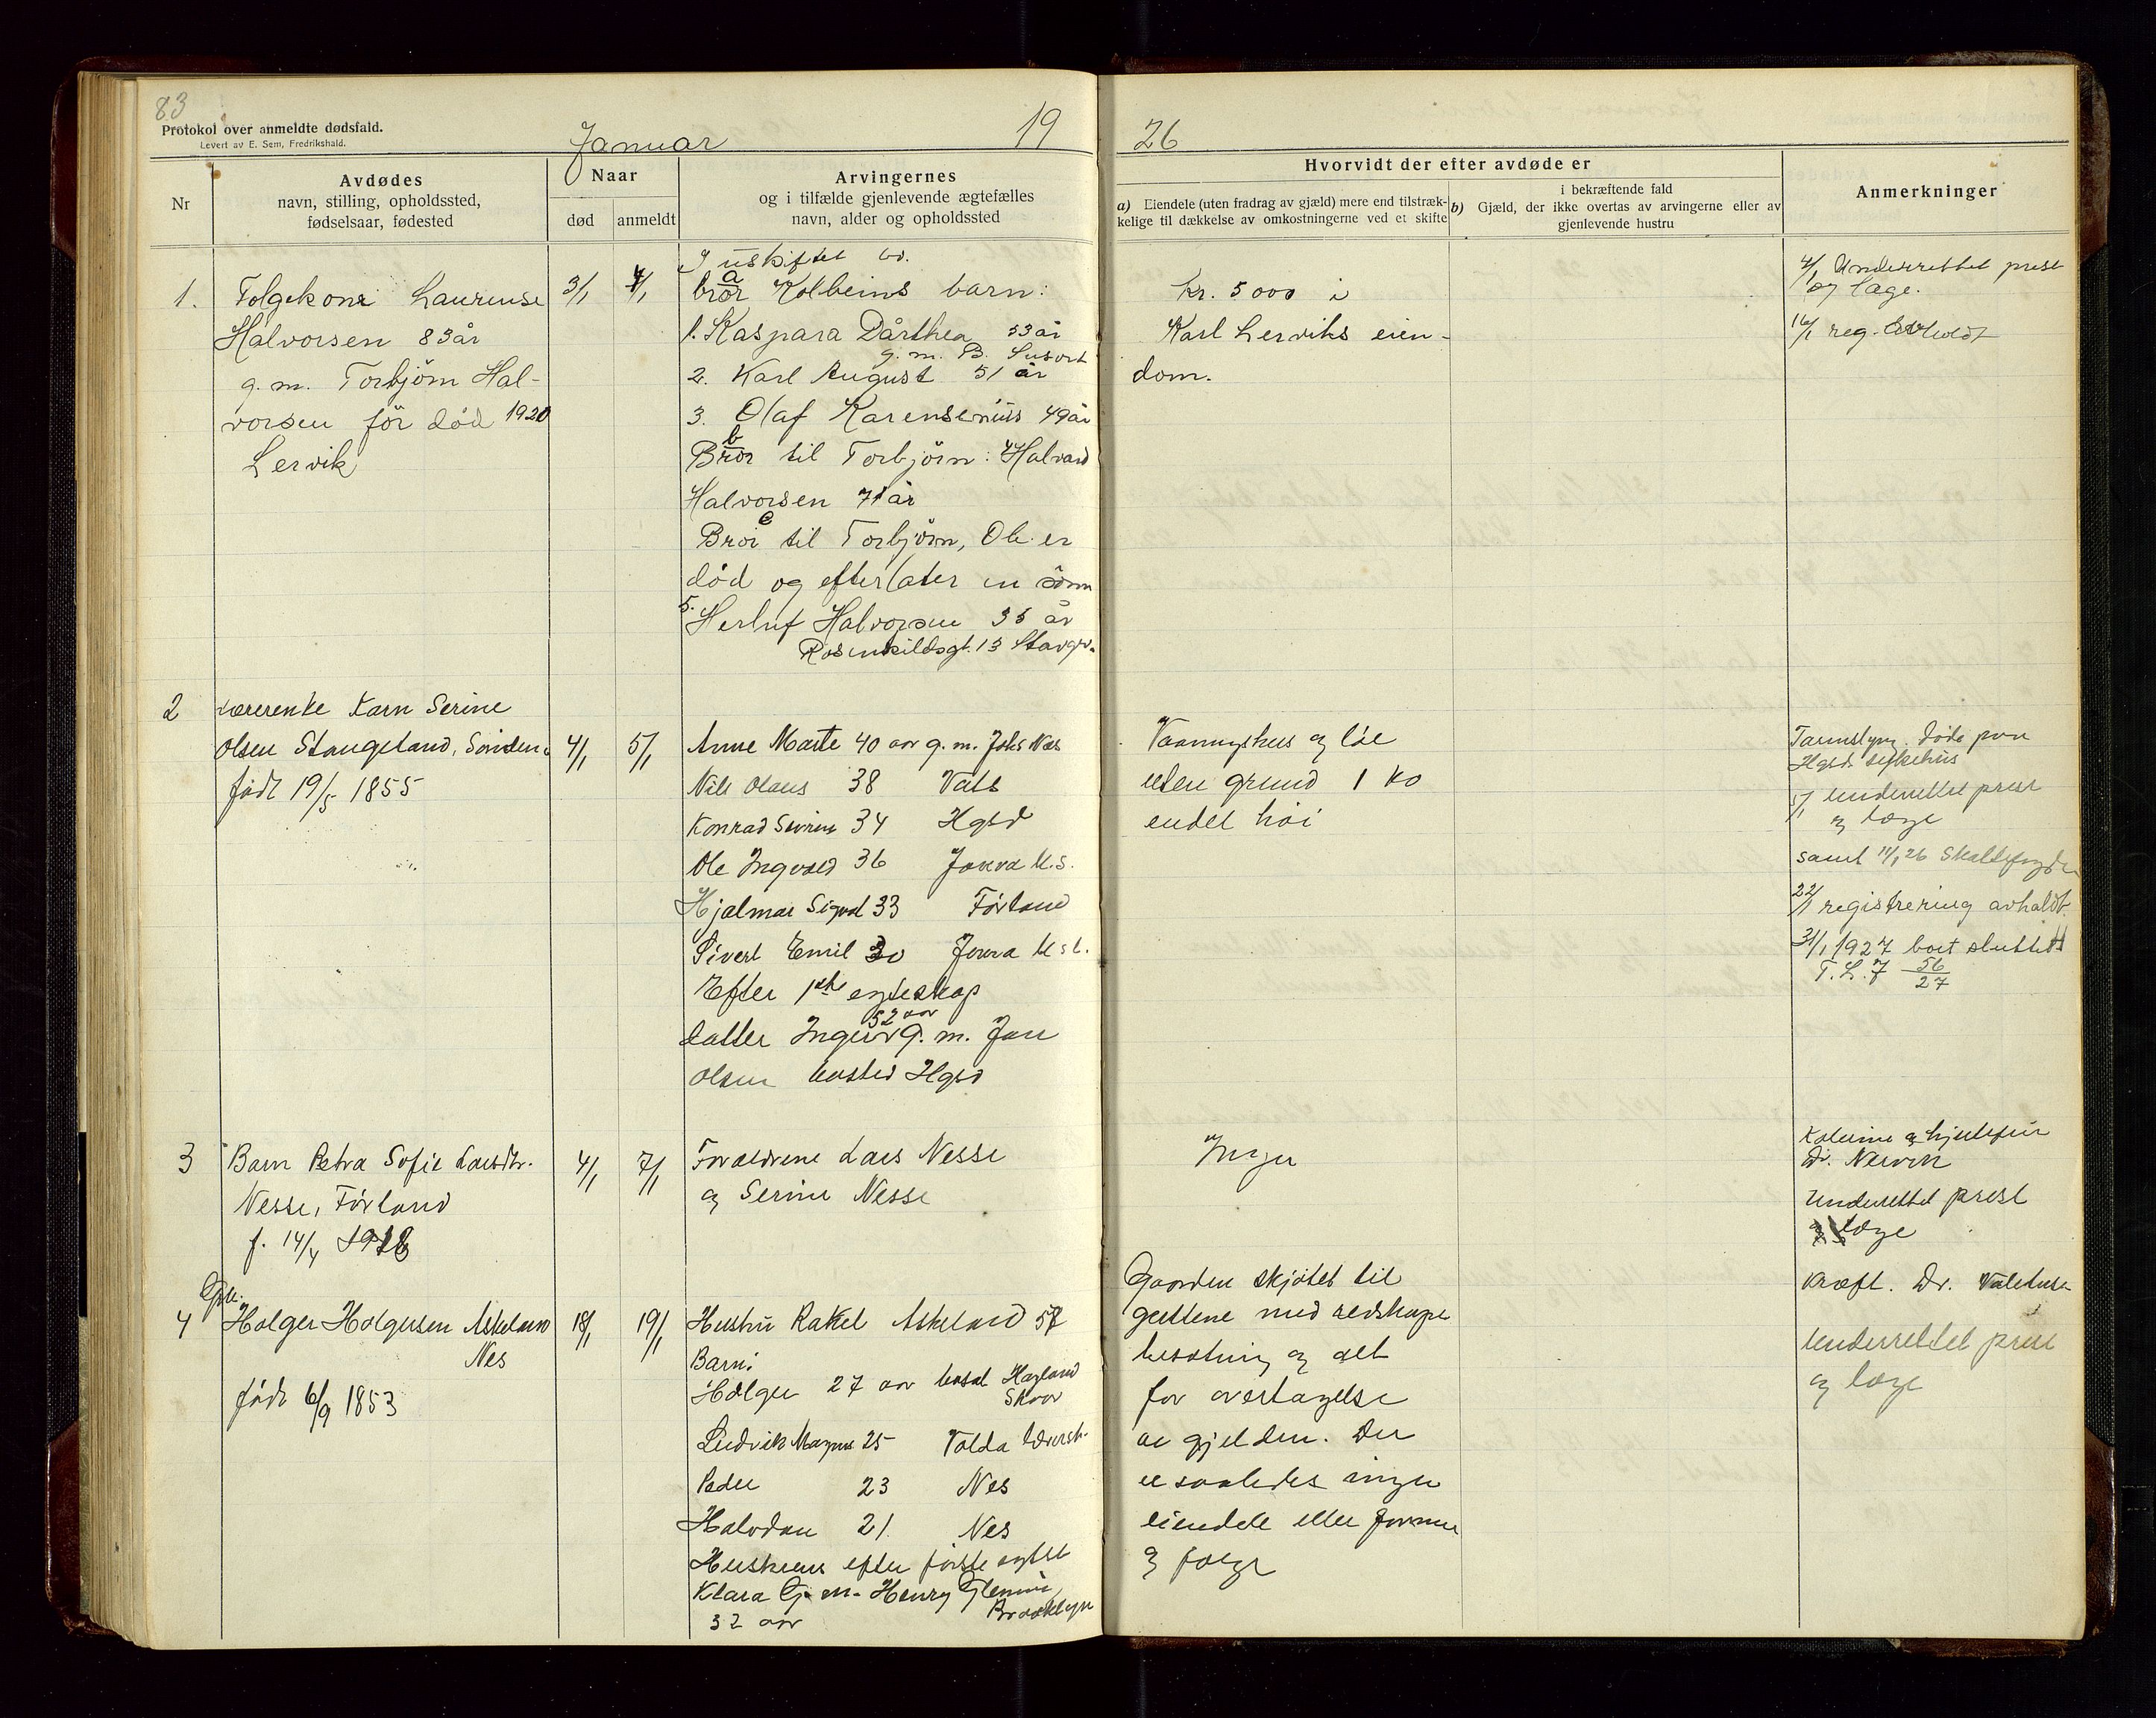 83
Protokol over anmeldte dødsfald.
Levert av E. Sem, Fredrikshald.
Januar
19
26
Nr
Avdødes
navn, stilling, opholdssted,
fødselsaar, fødested
Naar
død
anmeldt
Arvingernes
og i tilfælde gjenlevende ægtefælles
navn, alder og opholdssted
Hvorvidt der efter avdøde er
a) Eiendele (uten fradrag av gjæld) mere end tilstræk-
kelige til dækkelse av omkostningerne ved et skifte
i bekræftende fald
b) Gjæld, der ikke overtas av arvingerne eller av
gjenlevende hustru
Anmerkninger
1.
Halvorsen 83 år
g. m. Torbjörn Hal-
vorsen för död 1920
Lervik
3/1
4/1
I uskiftet bo.
a
bror Kolbeins barn:
1. Kaspara Dårthea 53 år
g. m. B.
2. Karl August 51 år
3. Olaf 49 år
b
Bror til Torbjörn: 4 Halvard
Halvorsen 71 år
c
Bror til Torbjörn, Ole er
död og efterlater en sönn
5. Herluf Halvorsen 35 år
13 Stavgr.
Kr. 5000 i
Karl Lerviks eien-
dom.
4/1 Underrettet prest
og læge.
16/1 reg. avholdt
2
Karn Serine
Olsen Stangeland,
født 19/5 1855
4/1
5/1
Anne Marte 40 aar g. m. Johs Nes
Nils Olaus 38 Vats
Konrad 34 Hgsd
Ole Ingvald 36
Hjalmar Sigval 33 Förland
Sivert Emil 30
Efter 1ste egteskap
52 aar
datter Inger g. m. Jon
Olsen bosted Hgsd
Vaaningshus og löe
uten grund 1 ko
endel höi
døde paa
Hgsd. sykehus
5/1 underrettet prest
og læge
samt 11/1 26
22/1 registrering avholdt.
31/1 1927 boet sluttet
T.L. 7 56/27
3
Barn Petra Sofie Larsdtr.
Nesse, Förland
f. 14/4
4/1
7/1
Foraldrene Lars Nesse
og Serine Nesse
Ingen
Dr. Nervik
Underrettet prest
og læge
4
Holger Holgersen Askeland
Nes
født 6/9 1853
18/1
19/1
Hustru Rakel Askeland 57
Barn:
Holger 27 aar bosat Hagland
Skaar
Ludvik Magnus 25
Peder 23 Nes
Halvdan 21. Nes
efter første
Klara G. m. Henry
Brooklyn
32 aar
Gaarden skjötet til
guttene med redskape
besætning og alt
for overtagelse
av gjelden. Der
er saaledes ingen
eiendele eller formue
Kræft. Dr.
Underrettet prest
og læge